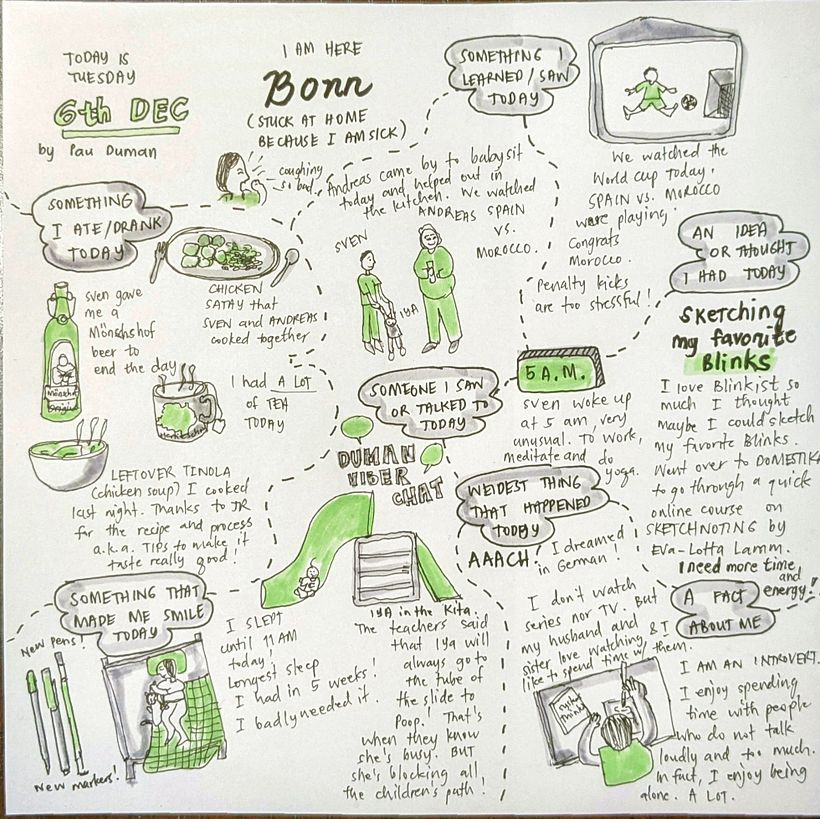 TODAY IS
TUESDAY
6th DEC
by Pau Duman
I AM HERE
Bonn
(STUCK AT HOME
BECAUSE I AM SICK)
coughing
so bad
SOMETHING I
LEARNED/SAW
TODAY
We watched the
World Cup Today.
SPAIN VS. MOROCCO
were playing.
Congrats
Morocco.
Penalty kicks
are too stressful!
SOMETHING
I ATE/DRANK
TODAY
CHICKEN
SATAY that
SVEN and ANDREAS
cooked together
sven gave
me a
Mönschshof
beer to
end the day
I had A LOT
of TEA
TODAY
LEFTOVER TINOLA
(chicken soup) I cooked
last night. Thanks to JR
for the recipe and process
a.k.a. TIPS to make it
taste really good!
Andreas came by to babysit
today and helped out in
the kitchen. We watched
SPAIN
VS.
MOROCCO.
SVEN
ANDREAS
IYA
SOMEONE I SAW
OR TALKED TO
TODAY
DUMAN
VIBER
CHAT
IYA in the Kita.
The teachers said
that Iya will
always go to
the tube of
the slide to
Poop! That's
when they know
she's busy. BUT
she's blocking all
the children's path!
AN IDEA
OR THOUGHT
I HAD TODAY
SKETCHING
my favorite
Blinks
I love Blinkist so
much I thought
maybe I could sketch
my favorite Blinks.
Went over to DOMESTIKA
to go through a quick
online course on
SKETCHNOTING by
Eva-Lotta Lamm.
I need more time
and
energy!
5 A.M.
sven woke up
at 5 am, very
unusual. To work,
meditate and do
yoga.
WEIDEST THING
THAT HAPPENED
TODAY
AAACH! I dreamed
in German!
I don't watch
series nor TV. But
my husband and
sister love watching & I
like to spend time w/ them.
SOMETHING THAT
MADE ME SMILE
TODAY
New Pens!
New markers!
I SLEPT
until 11 AM
today!
Longest sleep
I had in 5 weeks!
I badly needed it.
A FACT
ABOUT ME
I AM AN INTROVERT.
I enjoy spending
time with people
who do not talk
loudly and too much.
In fact, I enjoy being
alone. A LOT.